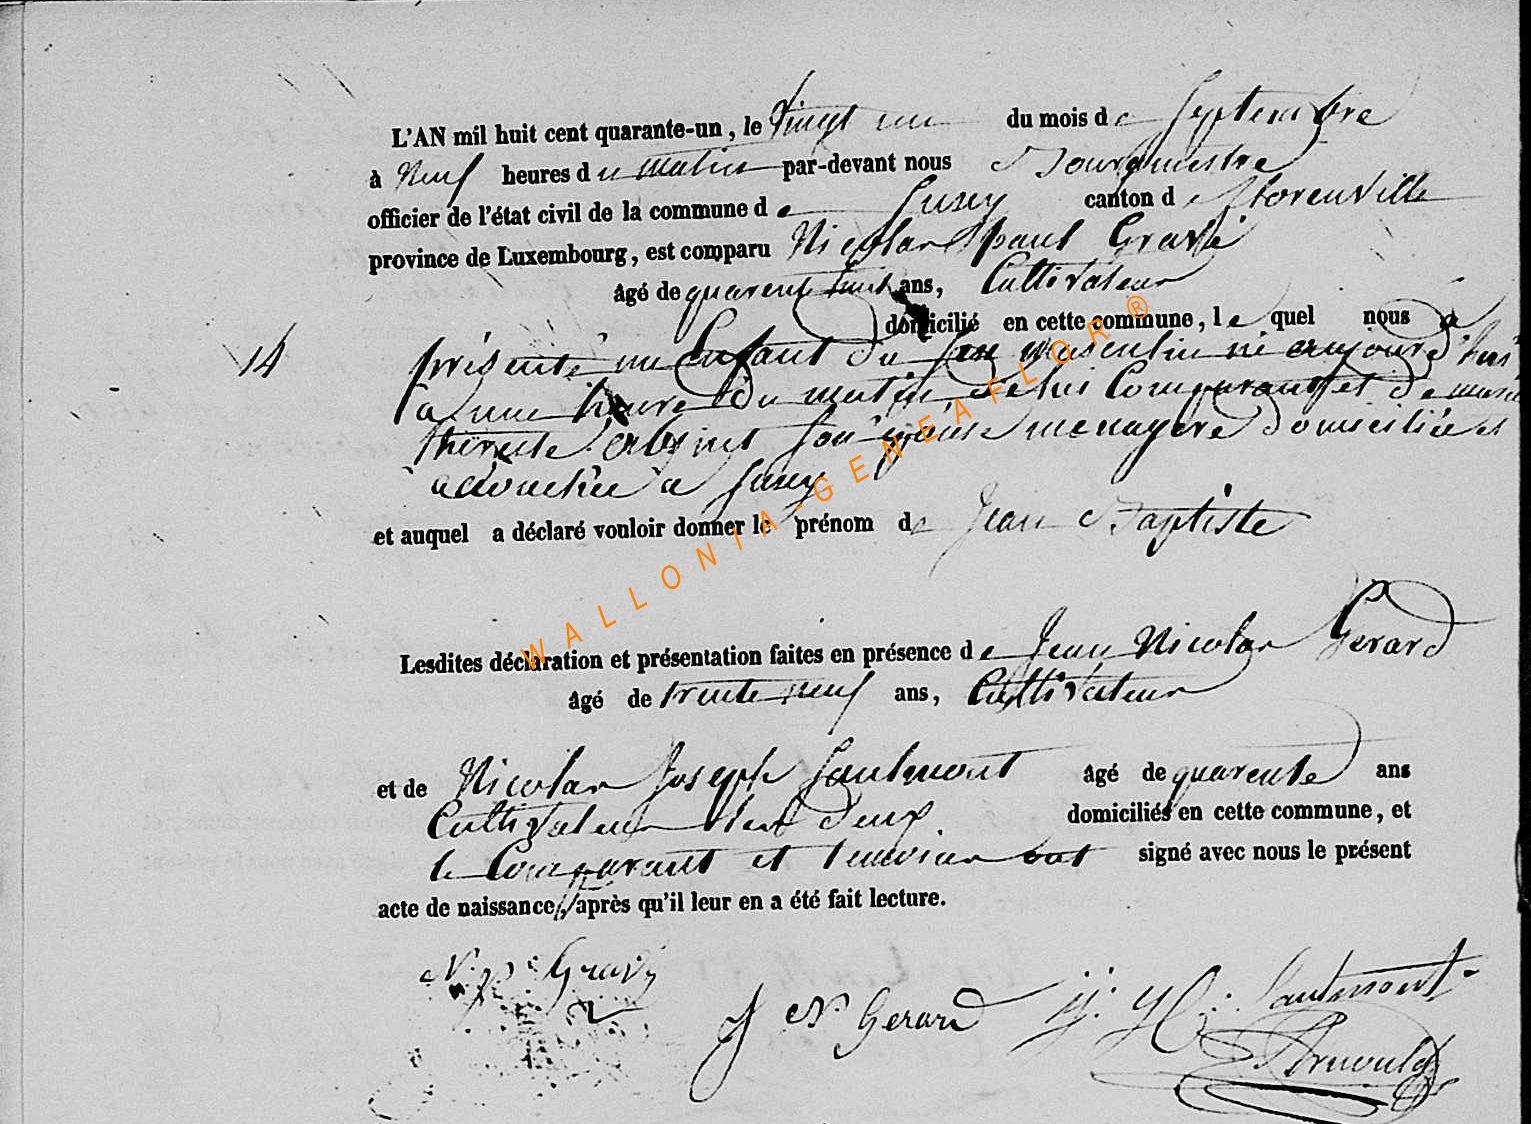 L'AN mil huit cent quarante-un, le vingt un du mois de Septembre
à Neuf heures du matin par-devant nous Bourgmestre
officier de l'état civil de la commune de Suxy canton de Florenville
province de Luxembourg, est comparu Nicolas paul Gravé
âgé de quarente huit ans, Cultivateur
domicilié en cette commune, le quel nous a
14 présenté un Enfant du sexe masculin né aujourd'hui
a une heure du matin, de lui Comparant et de marie
thérèse son épouse menagere domiciliée et
accouchée a Suxy
et auquel a déclaré vouloir donner le prénom de Jean Baptiste
Lesdites déclaration et présentation faites en présence de Jean Nicolas Gerard
âgé de trente neuf ans, Cultivateur
et de Nicolas Joseph Saulmont âgé de quarente ans
Cultivateur les deux domiciliés en cette commune, et
le Comparant et temoins ont signé avec nous le présent
acte de naissance, après qu'il leur en a été fait lecture.
N. p. Gravé
J N Gerard
Arnould
WALLONIA-GENEAFLOR®